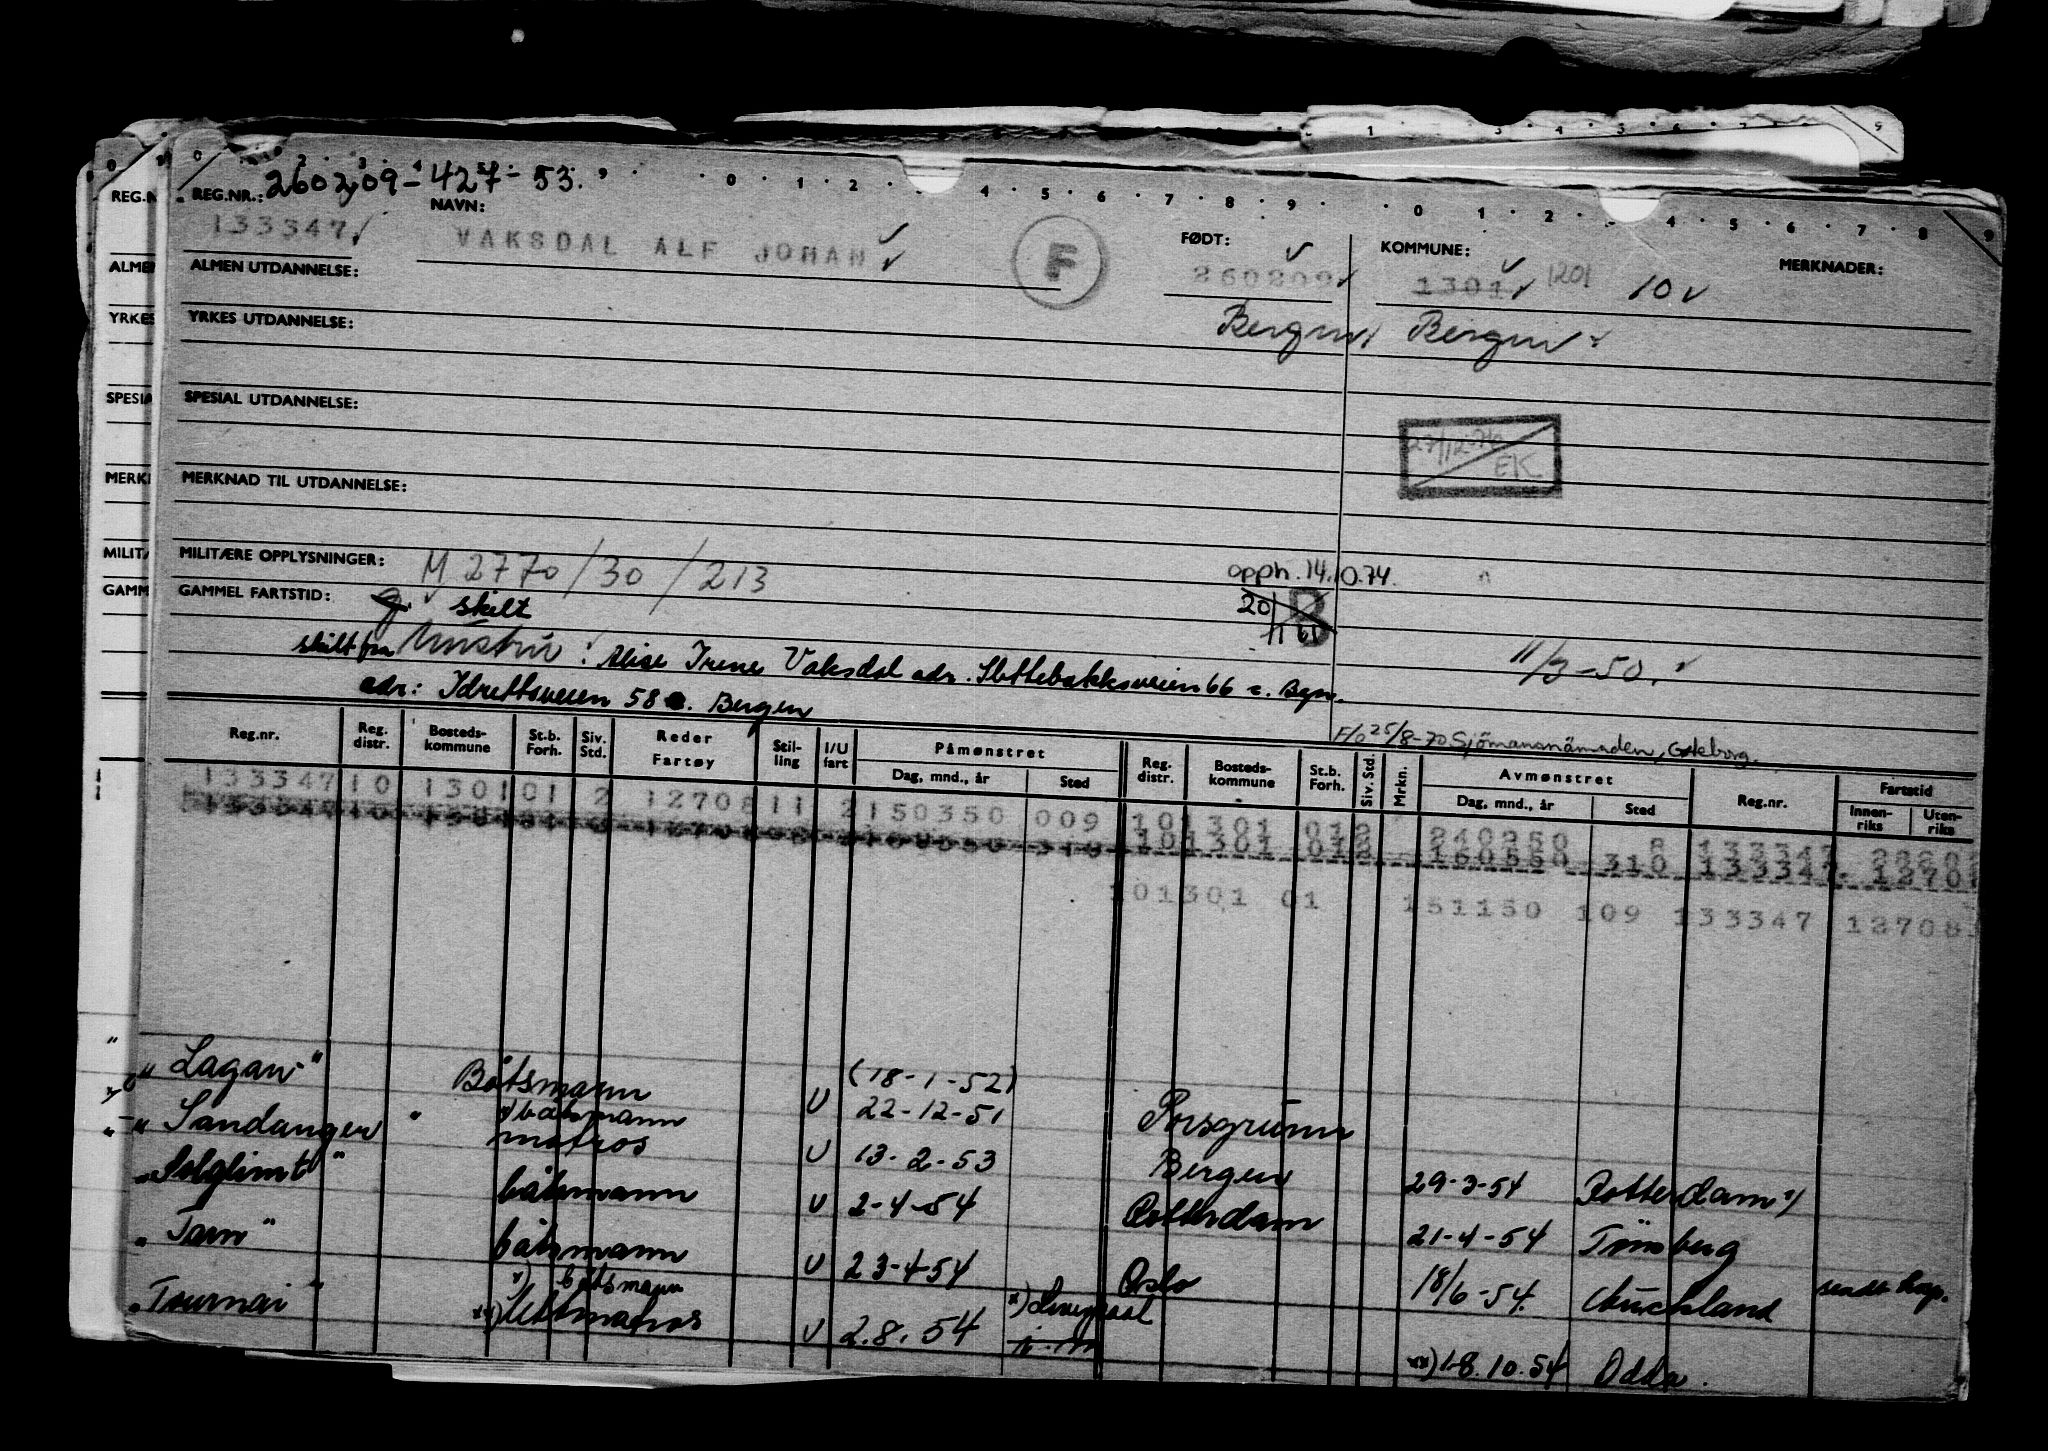 REG.NR.: 260209-427-53.
NAVN:
133347 VAKSDAL ALF JOHAN F
FØDT: KOMMUNE: MERKNADER:
260209 1301 1201 10
ALMEN UTDANNELSE:
Bergen Bergen
YRKES UTDANNELSE:
SPESIAL UTDANNELSE:
27/12-76 EK
MERKNAD TIL UTDANNELSE:
MILITÆRE OPPLYSNINGER: M 2770/30/213
opph. 14.10.74.
GAMMEL FARTSTID: skilt
20/11 61 B
skilt fra hustru: Alise Irene Vaksdal adr. Slettebakksveien 66 c. Bgn.
11/3-50.
adr: Idrettsveien 58 Bergen
F/6 25/8-70 Sjömansnämnden, Göteborg.
Reg.nr. Reg. distr. Bosteds-kommune St.b. Forh. Siv. Std. Reder Fartøy Stil-ling I/U fart Påmønstret Dag, mnd., år Sted Reg. distr. Bosteds-kommune St.b. Forh. Siv. Std. Mrkn. Avmønstret Dag, mnd., år Sted Reg.nr. Fartstid Innen-riks Uten-riks
133347 10 1301 01 2 12708 11 2 150350 009 10 1301 012 240250 8 133347
101301 012 160550 310 133347 12708
101301 01 151150 109 133347 12708
"Lagan" Båtsmann U (18-1-52) 22-12-51 Porsgrunn
"Sandanger" båtsmann matros U 13-2-53 Bergen 29-3-54 Rotterdam
"Solglimt" båtsmann U 2-4-54 Rotterdam 21-4-54 Tönsberg
"Tarn" båtsmann U 23-4-54 Oslo 18/6-54. Auckland
"Tournai" x) båtsmann xx) lettmatros U 2.8.54 x) xx) 18.10.54 Odda.